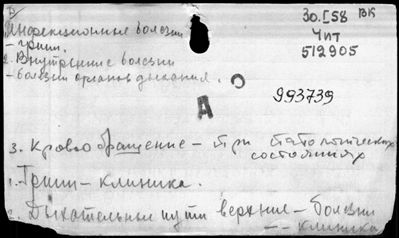 В/
Инфекционные болезни
- грипп.
2. Внутренние болезни
- болезни органов дыхания.
30.I 58 ВК
Чит
512905
993739
А
3. Кровообращение - при патологических
состояниях
1. Грипп - клиника.
2. Дыхательные пути верхние - болезни
- - клиника